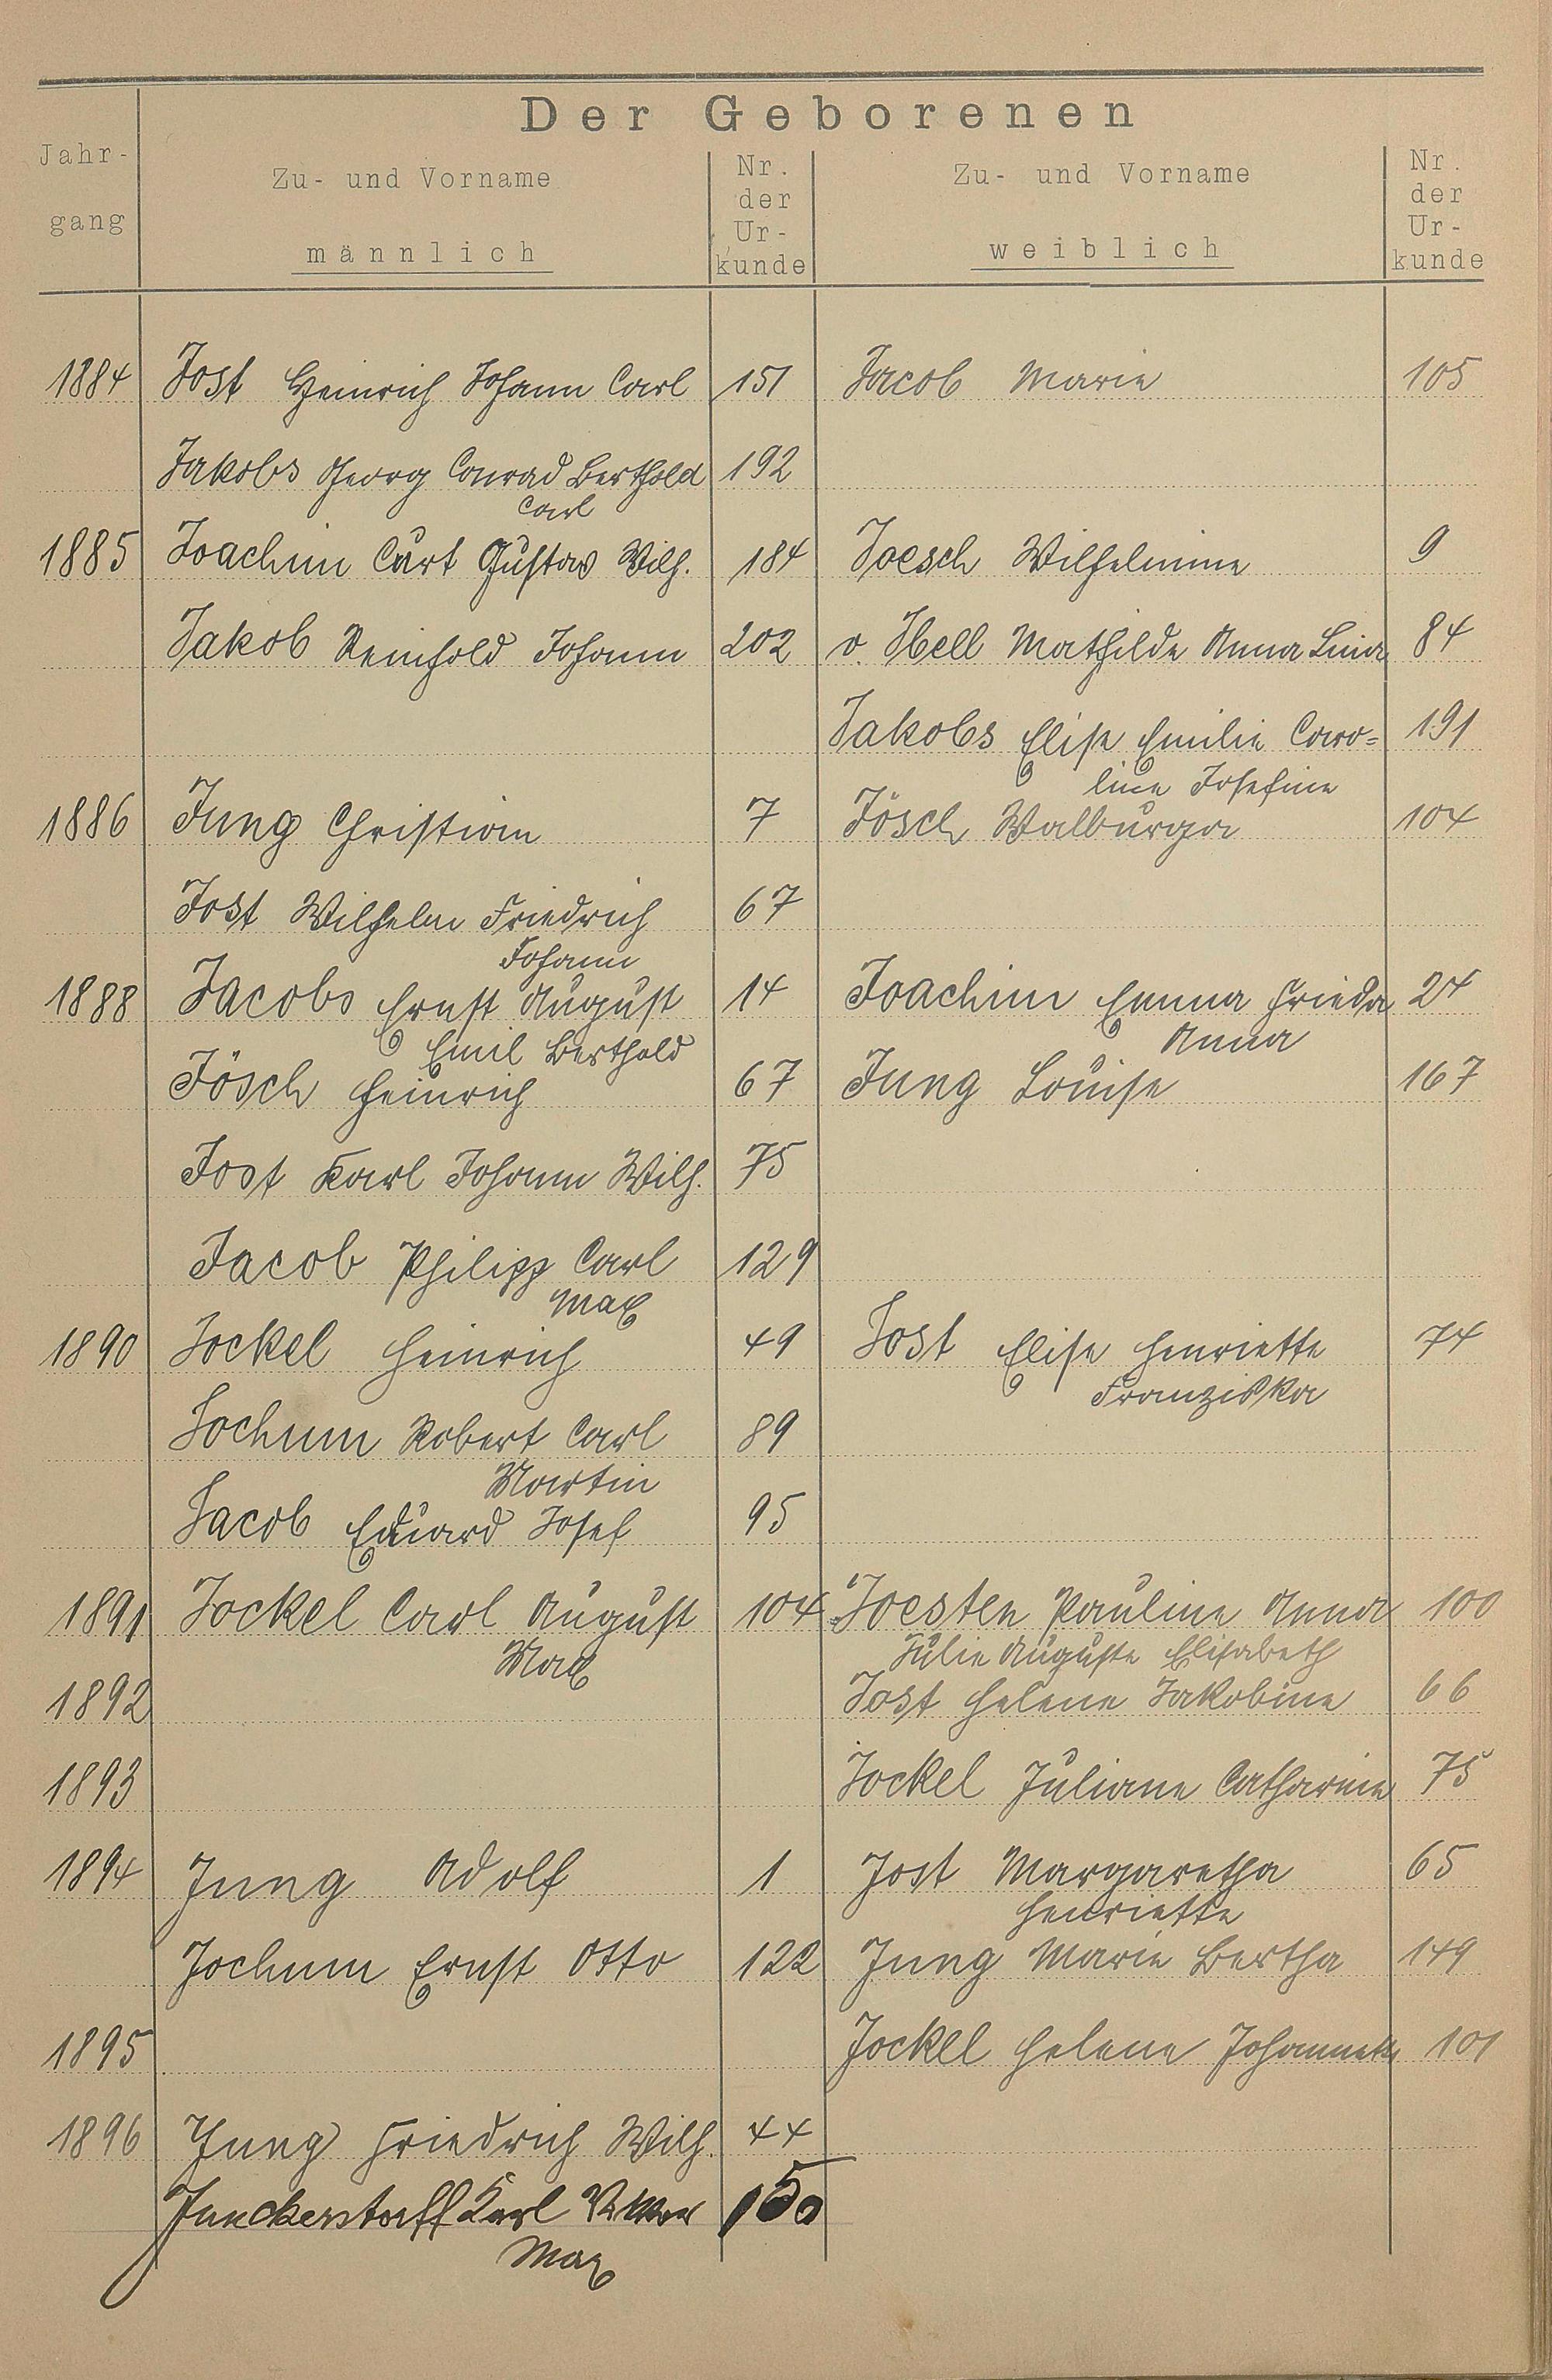 Der Geborenen
Jahr-
gang
Zu- und Vorname
männlich
Nr.
der
Ur-
kunde
Zu- und Vorname
weiblich
Nr.
der
Ur-
kunde
1884 Jost Heinrich Johann Carl 151 Jacob Marie 105
Jakobs Georg Conrad Berthold 192
Carl
1885 Joachim Curt Gustav Wilh. 184 Joesch Wilhelmine 9
Jakob Reinhold Johann 202 v. Ibell Mathilde Anna Lina 84
Jakobs Elise Emilie Caro= 191
line Josefine
1886 Jung Christian 7 Jösch Walburga 104
Jost Wilhelm Friedrich 67
Johann
1888 Jacobs Ernst August 14 Joachim Emma Frieda 24
Emil Berthold Anna
Jösch Heinrich 67 Jung Louise 167
Jost Karl Johann Wilh. 75
Jacob Philipp Carl 129
Max
1890 Jockel Heinrich 49 Jost Elise Henriette 74
Franziska
Jochum Robert Carl 89
Martin
Jacob Eduard Josef 95
1891 Jockel Carl August 104 Joesten Pauline Anna 100
Max Julie Auguste Elisabeth
1892 Jost Helene Jakobine 66
1893 Jockel Juliane Catharine 75
1894 Jung Adolf 1 Jost Margaretha 65
Henriette
Jochum Ernst Otto 122 Jung Marie Bertha 149
1895 Jockel Helene Johannette 101
1896 Jung Friedrich Wilh. 44
Junckerstorff Karl 150
Max